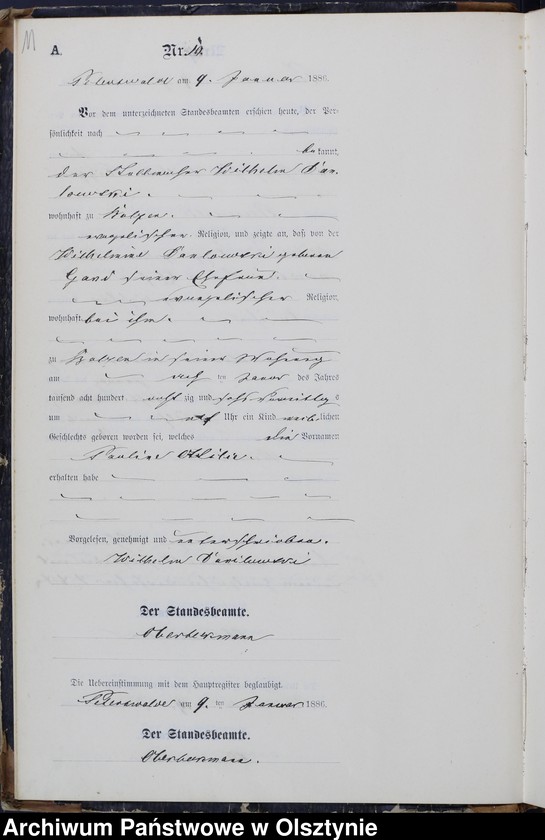 11
A.
Nr. 10.
Peterswalde am 9. Januar 1886.
Vor dem unterzeichneten Standesbeamten erschien heute, der Per-
sönlichkeit nach
bekannt,
der Wilhelm Paw-
lowski.
wohnhaft zu
evangelischer Religion, und zeigte an, daß von der
Wilhelmine Pawlowski geboren
seiner Ehefrau.
evangelischer Religion,
wohnhaft bei ihm
zu in seiner Wohnung
am ten Januar des Jahres
tausend acht hundert achtzig und sechs Vormittags
um Uhr ein Kind weiblichen
Geschlechts geboren worden sei, welches die Vornamen
Pauline Ottilie.
erhalten habe
Vorgelesen, genehmigt und unterschrieben.
Wilhelm
Der Standesbeamte.
Die Uebereinstimmung mit dem Hauptregister beglaubigt.
Peterswalde am 9. ten Januar 1886.
Der Standesbeamte.
Archiwum Państwowe w Olsztynie